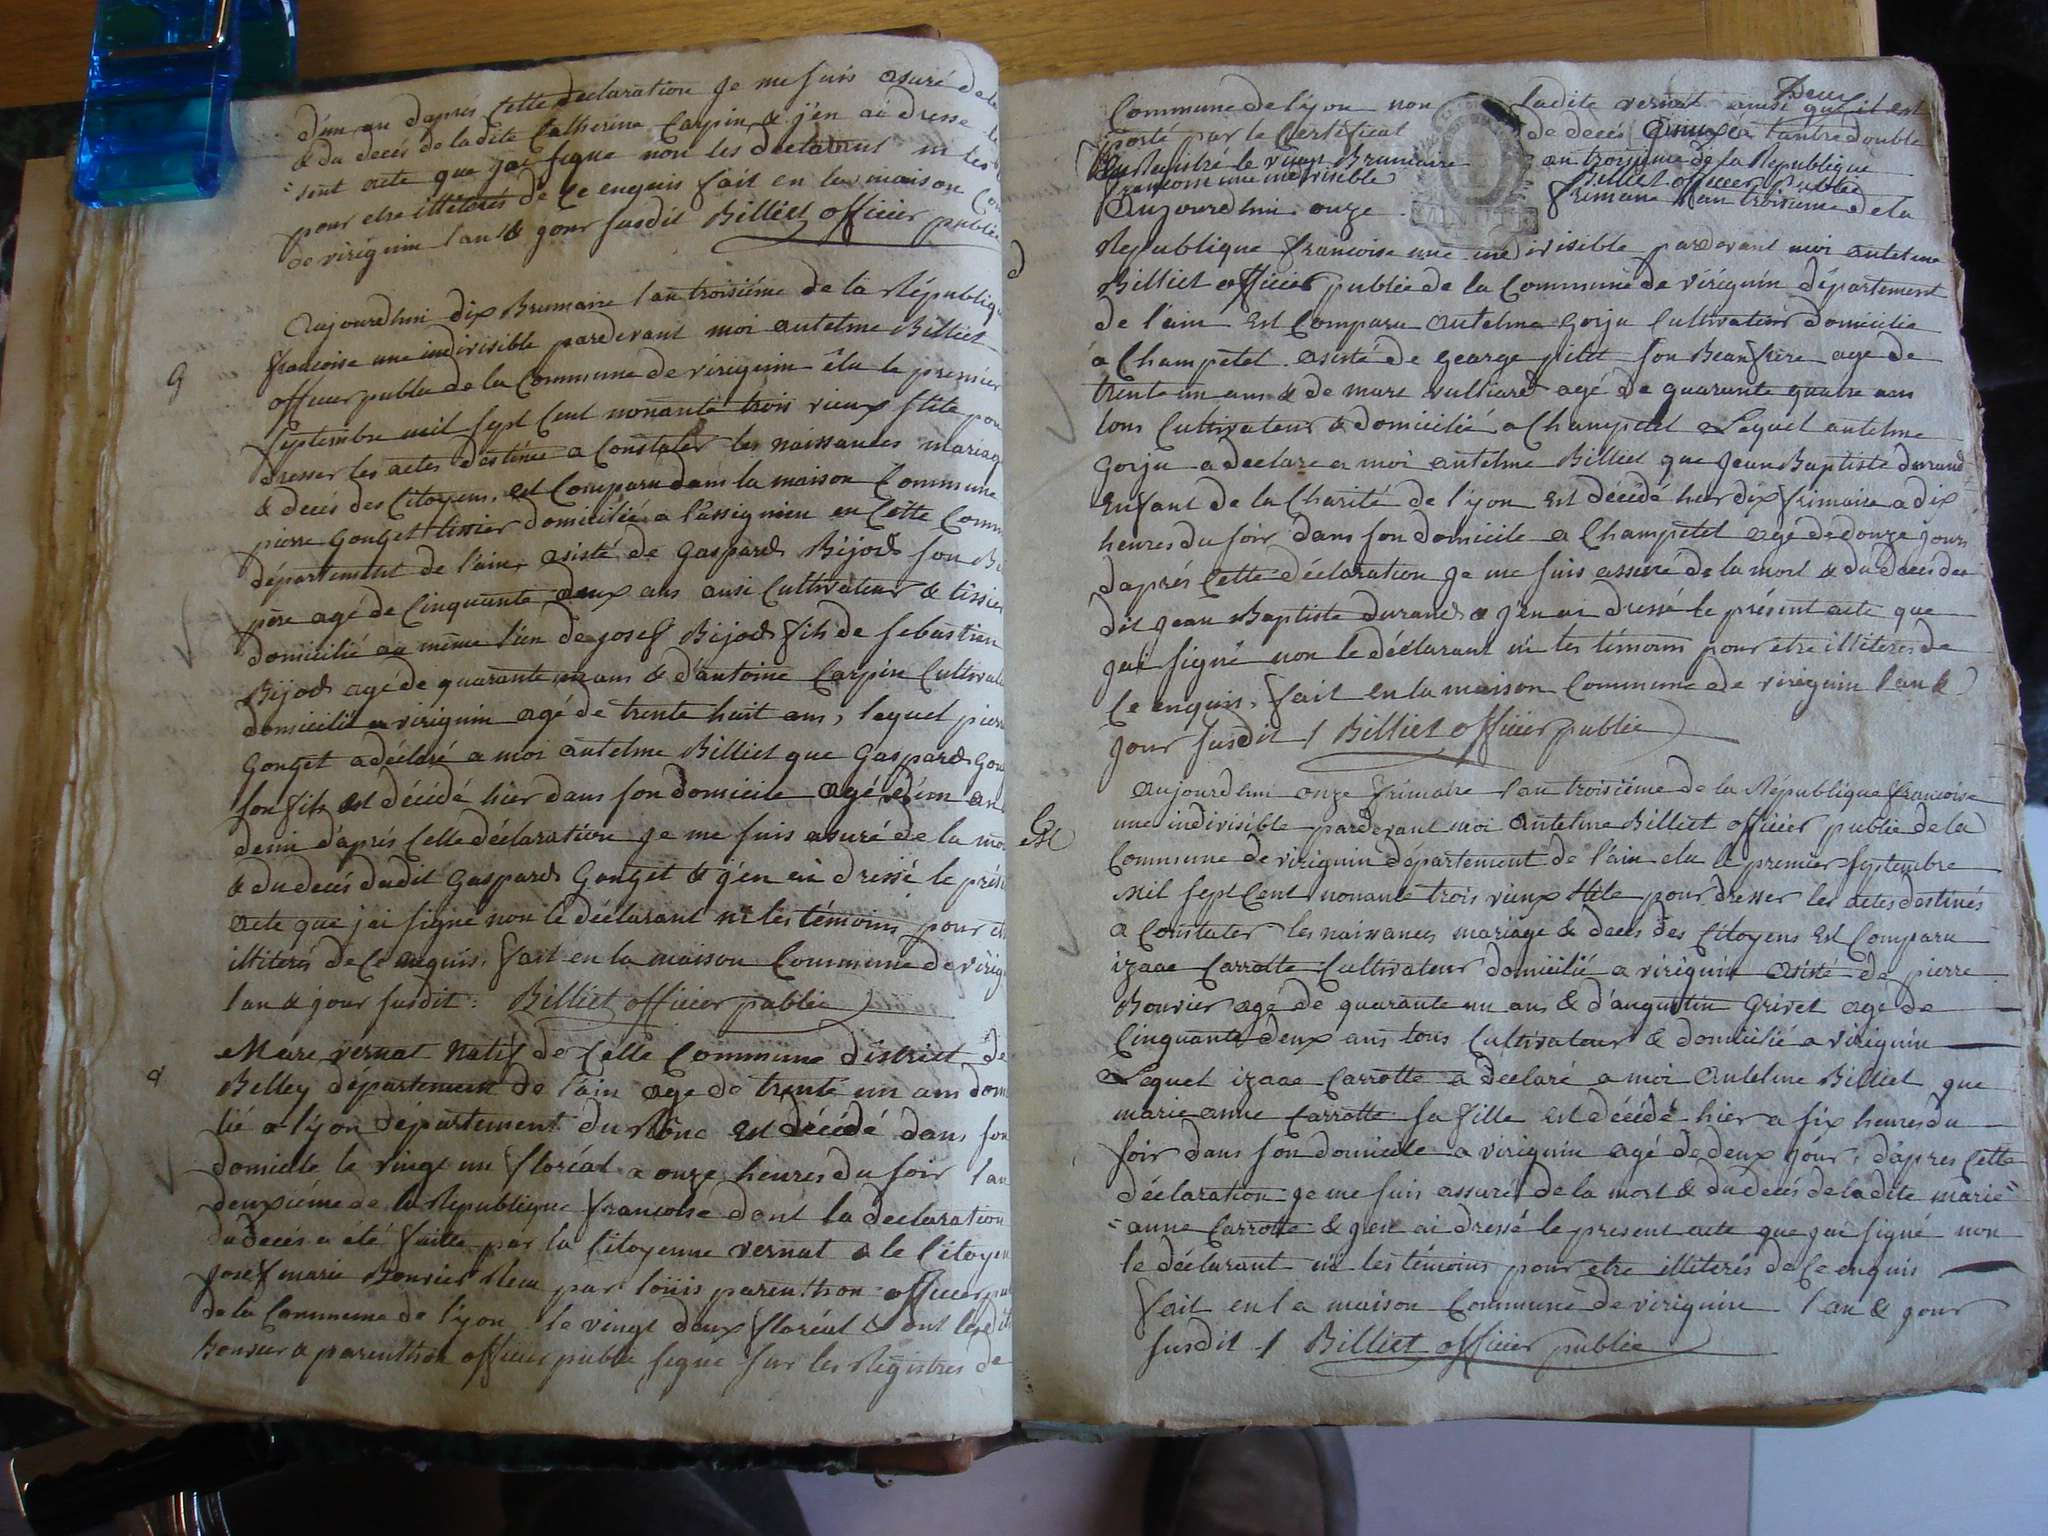 d'un an d'aprés Cette declaration Je me suis asuré de la
& du decés de ladite Catherine Carpin & j'en ai dressé le
sent acte que j'ai signé non les declarans ni les
pour etre illiterés de ce enquis fait en la maison Com
de virignin l'an & jour susdit Billiet officier publie
Aujourdhui dix Brumaire l'an troisiéme de la Républiq
francoise une indivisible pardevant moi antelme Billiet
G
officier publie de la Commune de virignin élu le premier
septembre mil sept Cent nonante trois vieux stile pou
dresser les actes destinés a Constater les naissances mariag
& decés des Citoyens, est Comparu dans la maison Commune
pierre Gonget tissier domicilié a l'assignieu en Cette Comm
département de l'ain, asisté de Gaspard Bijod son Be
pére agé de Cinquante deux ans ausi Cultivateur & tissier
domicilié au même lieu de josef Bijod fils de sebastien
Bijod agé de quarante un ans & d'antoine Carpin Cultivate
domicilié a virignin agé de trente huit ans, lequel pierre
Gonget a déclaré a moi antelme Billiet que Gaspard Gon
son fils est décédé hier dans son domicile agé d'un an
demi d'aprés Cette déclaration je me suis asuré de la mo
& du decés dudit Gaspard Gonget & j'en ai dressé le prés
acte que j'ai signé non le déclarant ni les témoins pour et
illiterés de Ce enquis. fait en la maison Commune de virig
l'an & jour susdit : Billiet officier publie
Marc vernat Natif de Cette Commune district de
&
Belley département de l'ain agé de trente un ans dom
lié a lyon département du Rône est décédé dans son
domicile le vingt un floréal a onze heures du soir l'an
deuxiéme de la Republique francoise dont la declaration
du decés a été faite par la Citoyenne vernat & le Citoyen
josef marie Bonvier Recu par loüis parenthon officier pu
de la Commune de lyon le vingt deux floréal & ont lesdit
Bonvier & parenthon officier publie signé sur les Registres de
Deux
Commune de lyon non ladite vernat ainsi qu'il est
porté par le Certificat de decés a l'autre double
Enregistré le vingt Brumaire an troisieme de la Republique
francoise une indivisible Billiet officier publie
Aujourdhui onze frimaire l'an troisieme de la
Republique francoise une indivisible pardevant moi antelme
d
Billiet officier publie de la Commune de virignin département
de l'ain est Comparu Antelme Gorju Cultivateur domicilié
a Champetel asisté de george pilit son Beaufrére agé de
trente un ans & de marc vulliard agé de quarante quatre ans
tous Cultivateur & domicilié a Champetel Lequel antelme
Gorju a declaré a moi antelme Billiet que Jean Baptiste durand
Enfant de la Charité de lyon est décédé hier dix frimaire a dix
heures du soir dans son domicile a Champetel agé de douze jours
d'aprés Cette déclaration je me suis assuré de la mort & du decés du
dit jean Baptiste durand & j'en ai dressé le présent acte que
j'ai signé non le déclarant ni les témoins pour etre illiterés de
Ce enquis, fait en la maison Commune de virignin l'an &
jour susdit / Billiet officier publie
Aujourdhui onze frimaire l'an troisiéme de la République francoise
une indivisible pardevant moi Antelme Billiet officier publie de la
Commune de virignin département de l'ain elu le premier septembre
mil sept Cent nonante trois vieux stile pour dresser les actes destinés
a Constater les naissances mariage & decés des Citoyens est Comparu
izaac Carrotte Cultivateur domicilié a virignin asisté de pierre
Bonvier agé de quarante un ans & d'augustin Grivet agé de
Cinquante deux ans tous Cultivateur & domicilié a virignin
Lequel izaac Carrotte a declaré a moi Antelme Billiet que
marie anne Carrotte sa fille est décédé hier a six heures du
soir dans son domicile a virignin agé de deux jour, d'apres Cette
déclaration je me suis assuré de la mort & du decés de ladite marie
anne Carrotte & j'en ai dressé le present acte que j'ai signé non
le déclarant ni les témoins pour etre illiterés de Ce enquis
fait en la maison Commune de virignin l'an & jour
susdit / Billiet officier publie